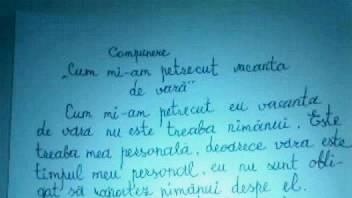 Compunere
„Cum mi-am petrecut vacanta
de vară"
Cum mi-am petrecut eu vacanta
de vara nu este treaba nimănui. Este
treaba mea personală, deoarece vara este
timpul meu personal, eu nu sunt obli-
gat să raportez nimănui despe el.